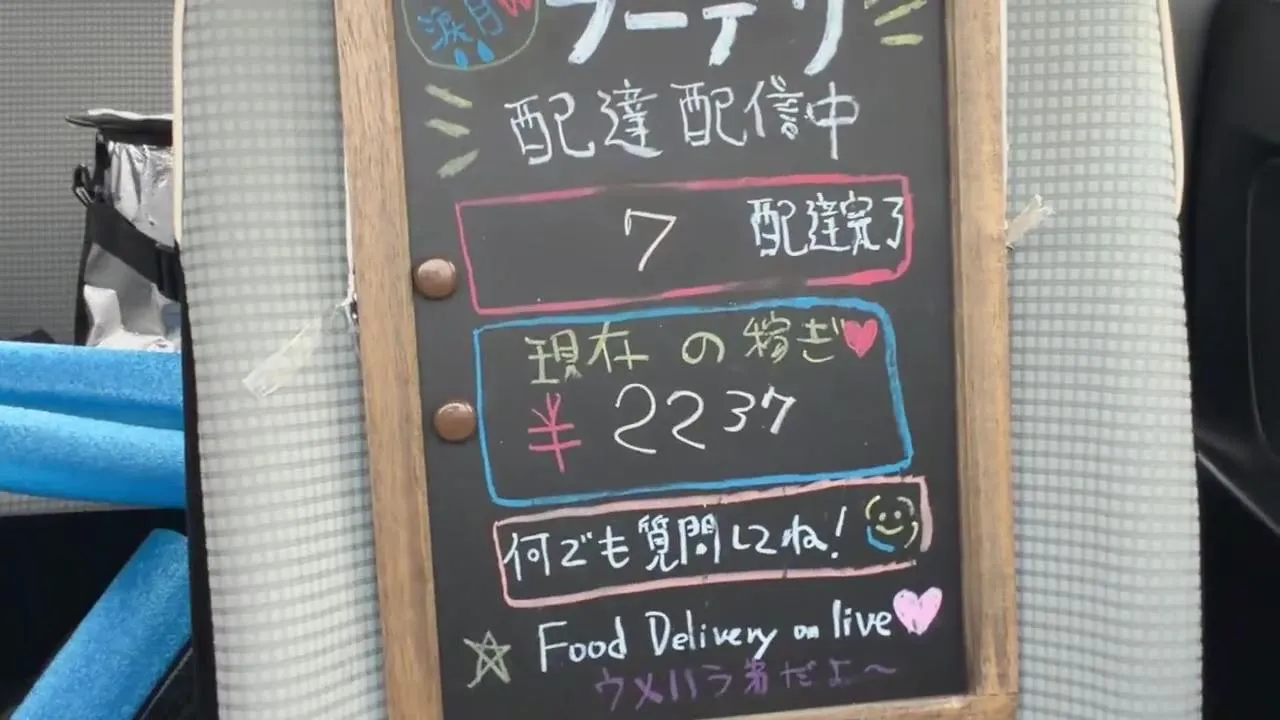 涙月
フーデリ
配達配信中
7 配達完了
現在の稼ぎ
¥2237
何でも質問してね!
Food Delivery on live
ウメハラ者だよ〜